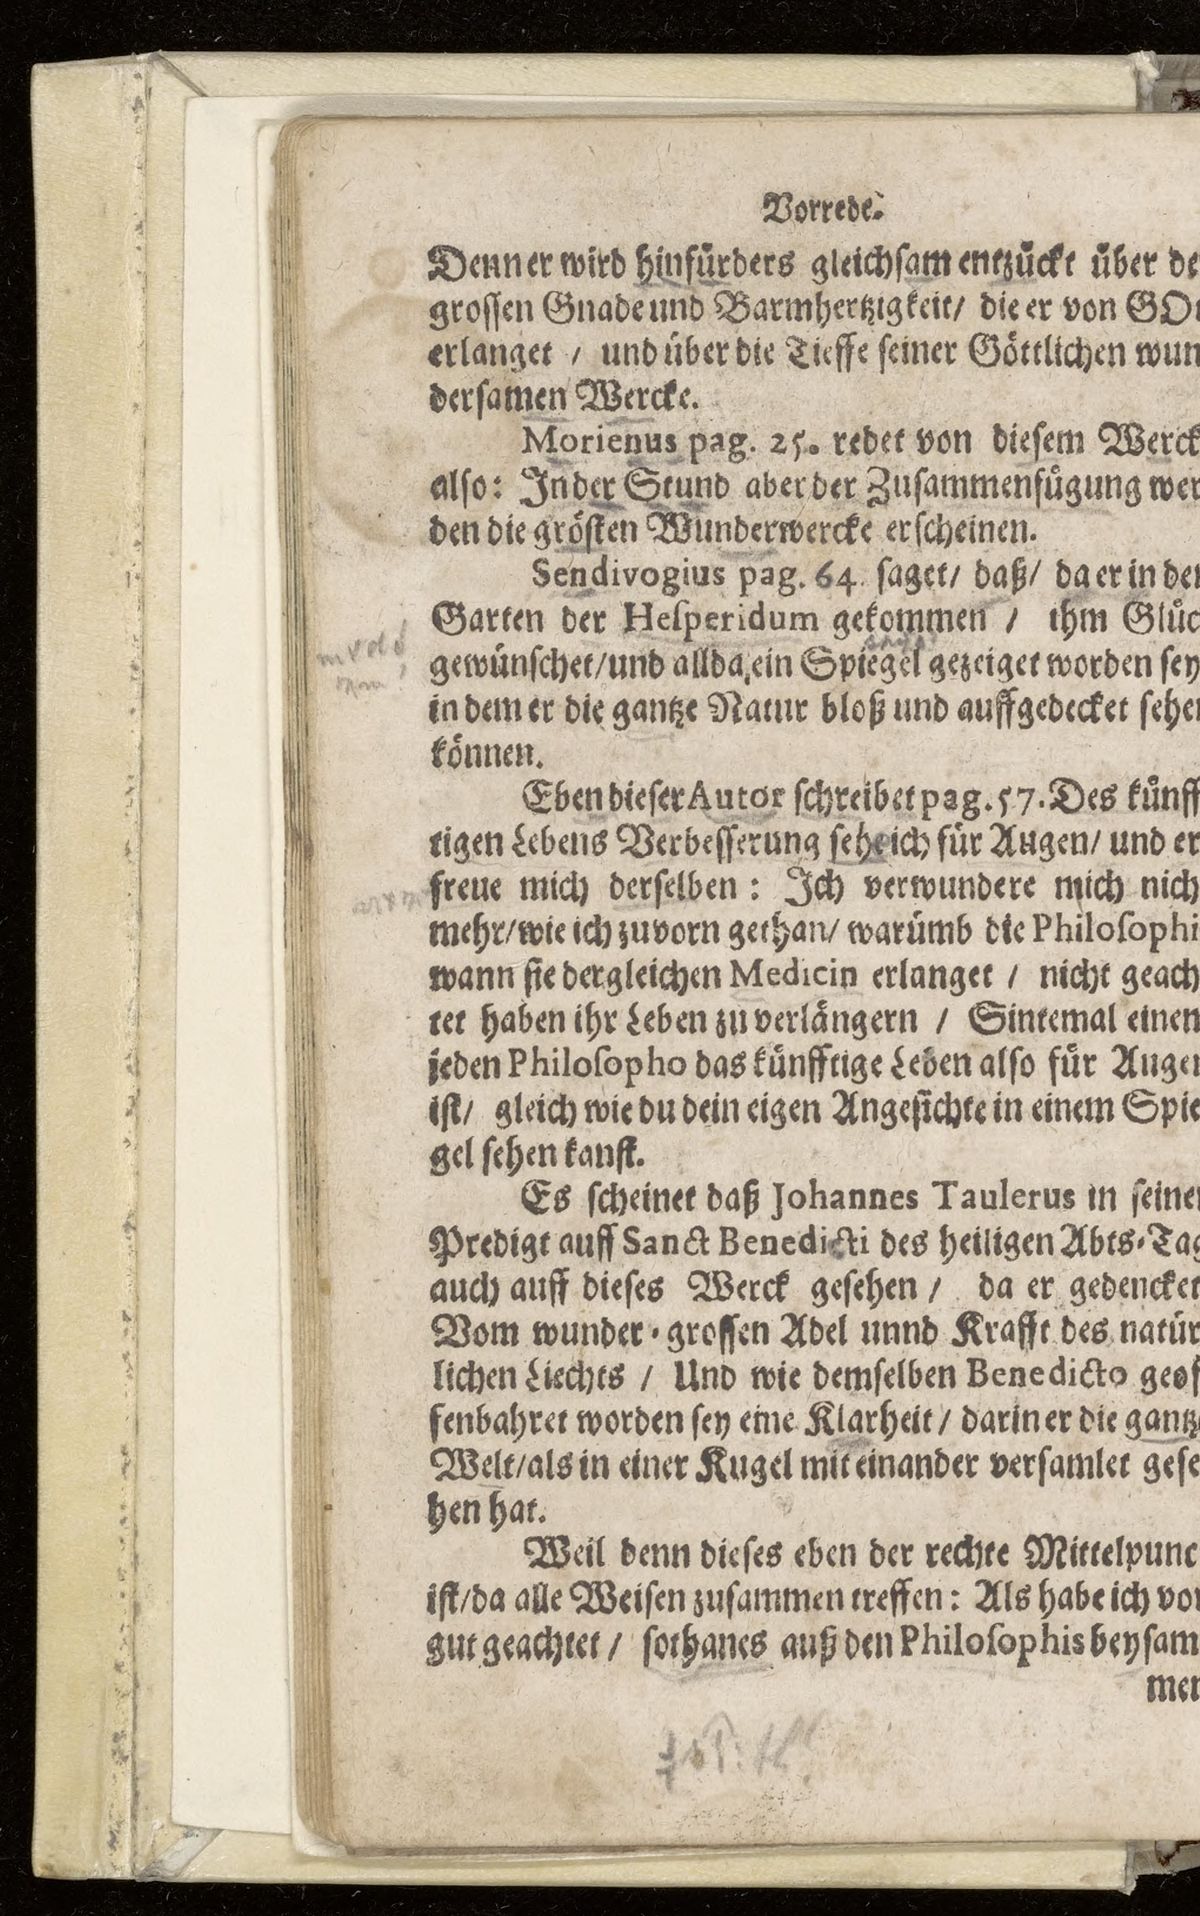 Vorrede.
Denn er wird hinfürders gleichsam entzückt über de
grossen Gnade und Barmhertzigkeit/ die er von GOt
erlanget / und über die Tieffe seiner Göttlichen wun
dersamen Wercke.
Morienus pag. 25. redet von diesem Werck
also: In der Stund aber der Zusammenfügung wer
den die grösten Wunderwercke erscheinen.
Sendivogius pag. 64. saget/ daß/ da er in den
Garten der Hesperidum gekommen / ihm Glüc
gewünschet/und allda ein Spiegel gezeiget worden sey
in dem er die gantze Natur bloß und auffgedecket sehen
können.
Eben dieser Autor schreibet pag. 57. Des künff
tigen Lebens Verbesserung sehe ich für Augen/ und er
freue mich derselben : Ich verwundere mich nich
mehr/wie ich zuvorn gethan/ warümb die Philosophi
wann sie dergleichen Medicin erlanget / nicht geach
tet haben ihr Leben zu verlängern / Sintemal einen
jeden Philosopho das künfftige Leben also für Augen
ist/ gleich wie du dein eigen Angesichte in einem Spie
gel sehen kanst.
Es scheinet daß Johannes Taulerus in seiner
Predigt auff Sanct Benedicti des heiligen Abts-Tag
auch auff dieses Werck gesehen / da er gedencket
Vom wunder-grossen Adel unnd Krafft des natür
lichen Liechts / Und wie demselben Benedicto geof
fenbahret worden sey eine Klarheit / darin er die gantz
Welt/als in einer Kugel mit einander versamlet gese
hen hat.
Weil denn dieses eben der rechte Mittelpunc
ist/da alle Weisen zusammen treffen: Als habe ich vor
gut geachtet / sothanes auß den Philosophis beysam
men